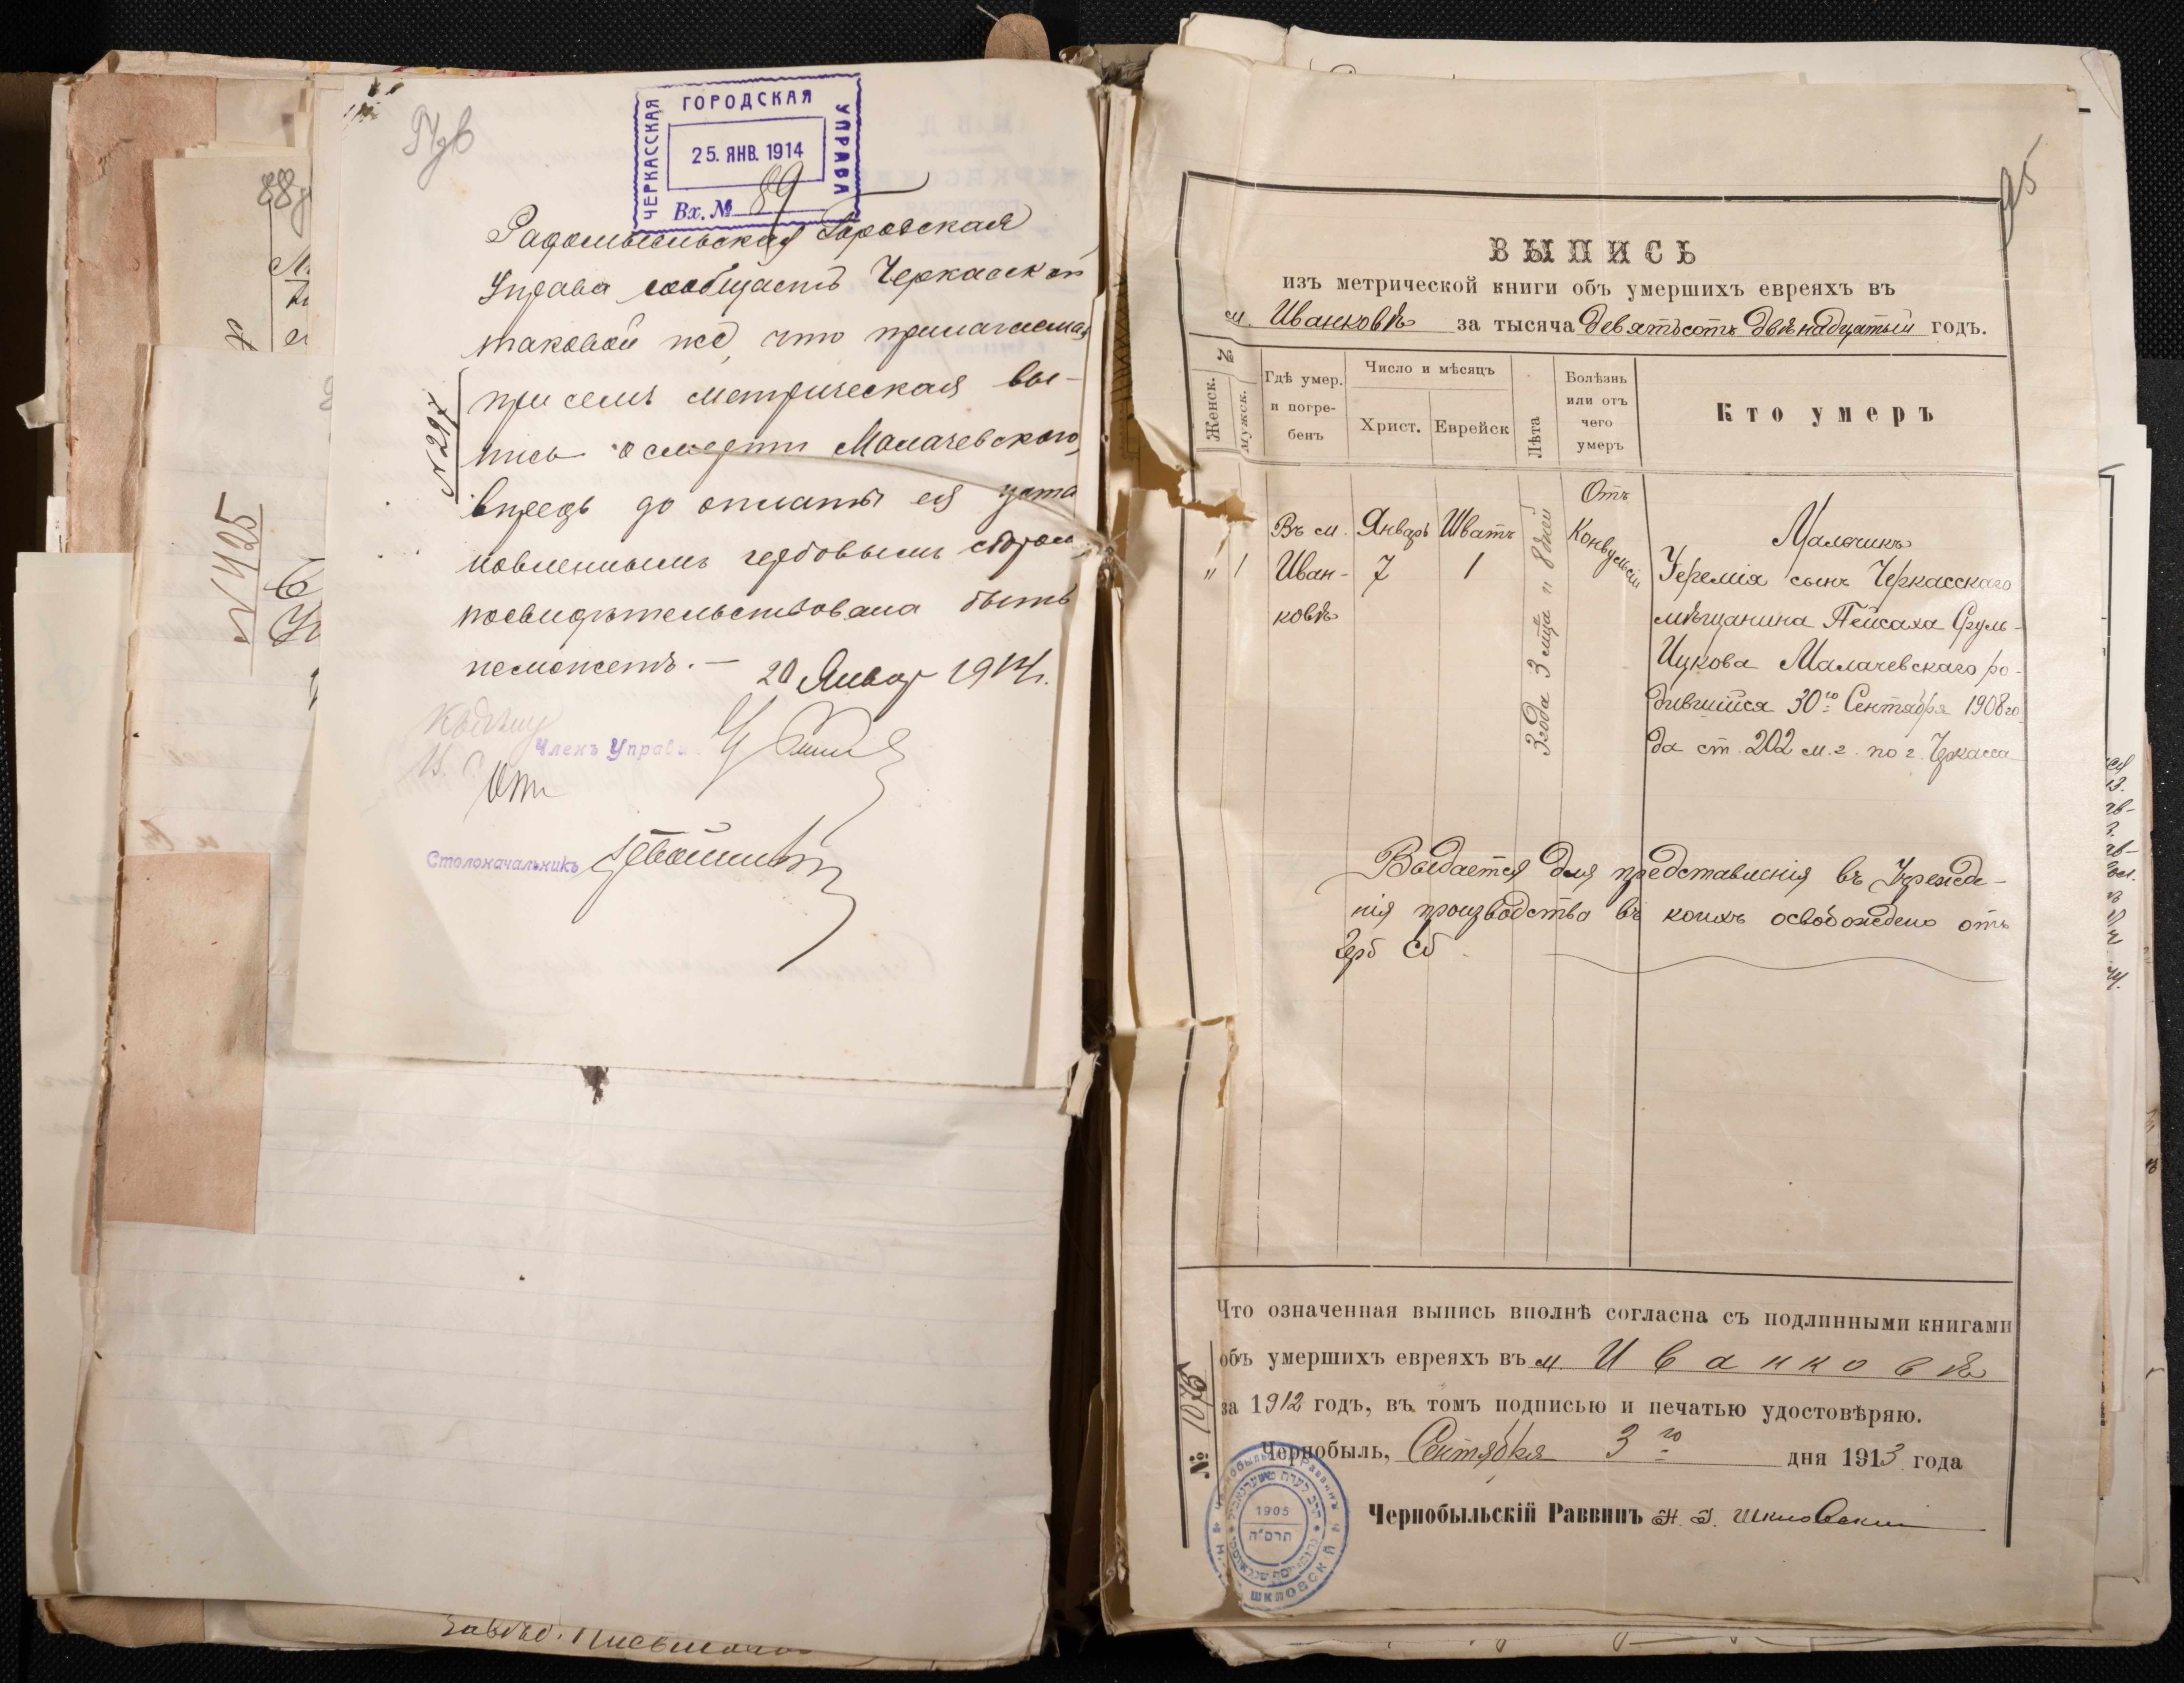 ЧЕРКАССКАЯ ГОРОДСКАЯ УПРАВА
25. ЯНВ. 1914
Вх. № 89
Радомысльская Городская
Управа сообщаетъ Черкасской
таковой же, что прилагаемая
при семъ метрическая вы-
пись о смерти Малачевского,
впредь до оплаты ея уста
новленнымъ гербовымъ сборомъ
посвидѣтельствована быть
неможетъ. — 20 Январ 1914 г.
№ 297
Членъ Управы
Столоначальникъ
№ 425
88
95
ВЫПИСЬ
изъ метрической книги объ умершихъ евреяхъ въ
м. Иванковѣ за тысяча девятьсотъ двѣнадцатый годъ.
№
Женск.
Мужск.
Гдѣ умер. и погре- бенъ
Число и мѣсяцъ
Христ.
Еврейск
Лѣта
Болѣзнь или отъ чего умеръ
Кто умеръ
" 1
Въ м.
Иван-
ковѣ
Январь
7
Шватъ
1
3 года 3 м-ца и 8 дней
Отъ
Конвульсій
Мальчикъ
Іеремія сынъ Черкасскаго
мѣщанина Пейсаха Сруль-
Ицкова Малачевскаго ро-
дившійся 30го Сентября 1908 го
да ст. 202 м. г. по г. Черкасса
Выдается для представленія въ Учрежде-
нія производства въ коихъ освобождено отъ
Герб Сб
Что означенная выпись вполнѣ согласна съ подлинными книгами
объ умершихъ евреяхъ въ м Иванковѣ
за 1912 годъ, въ томъ подписью и печатью удостовѣряю.
Чернобыль, Сентября 3го дня 1913 года
№ 1075
Чернобыльскій Раввинъ Н. І. Шкловскій
Чернобыльскій Раввинъ
ШКЛОВСКІЙ
1905
תרס"ה
Завѣд. Письмово